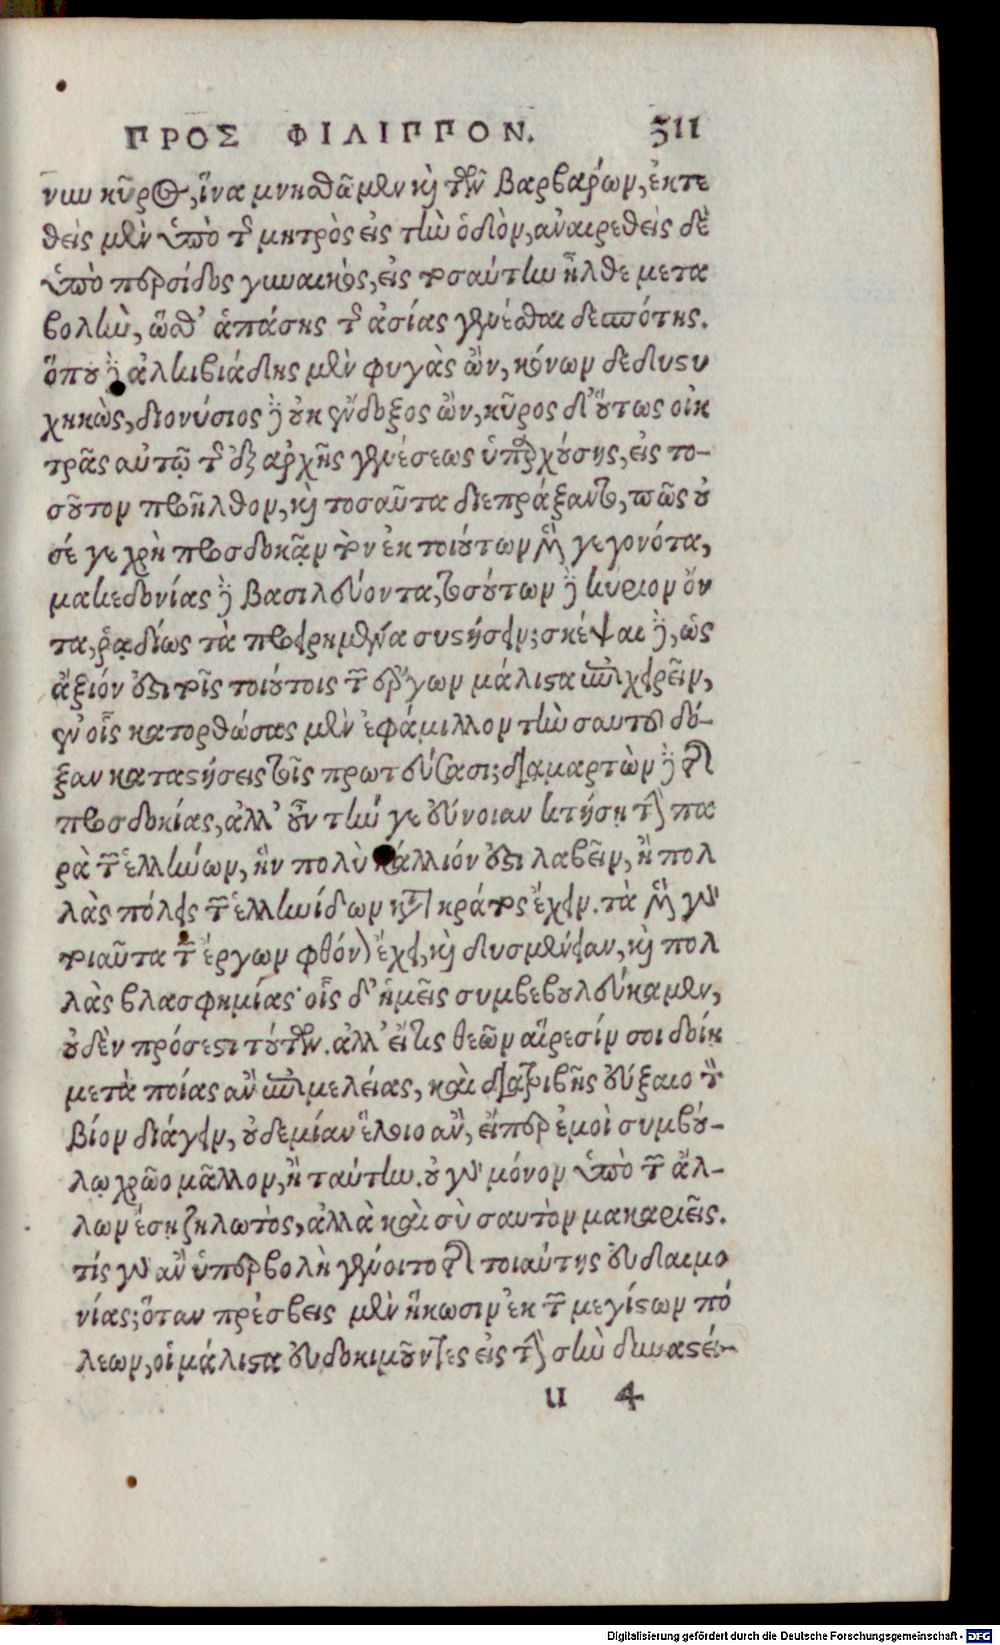 ΠΡΟΣ ΦΙΛΙΠΠΟΝ. 311
νων κῦρος, ἵνα μνησθῶμεν καὶ τῶν βαρβάρων, ἐκτε
θεὶς μὲν ὑπὸ τῆς μητρὸς εἰς τὴν ὁδὸν, ἀναιρεθεὶς δὲ
ὑπὸ περσίδος γυναικὸς, εἰς τοσαύτην ἦλθε μετα
βολὴν, ὥσθ' ἁπάσης τῆς ἀσίας γενέσθαι δεσπότης.
ὅπου δὲ ἀλκιβιάδης μὲν φυγὰς ὢν, κόνων δεδυστυ
χηκὼς, διονύσιος δὲ οὐκ ἔνδοξος ὢν, κῦρος δ' οὕτως οἰκ
τρᾶς αὐτῷ τῆς ἐξ ἀρχῆς γενέσεως ὑπαρχούσης, εἰς το-
σοῦτον προῆλθον, καὶ τοσαῦτα διεπράξαντο, πῶς οὐ
σέ γε χρὴ προσδοκᾷν τὸν ἐκ τοιούτων μὲν γεγονότα,
μακεδονίας δὲ βασιλεύοντα, τοσούτων δὲ κύριον ὄν
τα, ῥᾳδίως τὰ προειρημένα συστήσειν; σκέψαι δὲ, ὡς
ἄξιόν ἐστι τοῖς τοιούτοις τῶν ἔργων μάλιστα ἐπιχειρεῖν,
ἐν οἷς κατορθώσας μὲν ἐφάμιλλον τὴν σαυτοῦ δό-
ξαν καταστήσεις τοῖς πρωτεύσασι; διαμαρτὼν δὲ τῆς
προσδοκίας, ἀλλ' οὖν τήν γε εὔνοιαν κτήσῃ τὴν πα
ρὰ τῶν ἑλλήνων, ἣν πολὺ κάλλιόν ἐστι λαβεῖν, ἢ πολ
λὰς πόλεις τῶν ἑλληνίδων κατὰ κράτος ἔχειν. τὰ μὲν γὰρ
τοιαῦτα τῶν ἔργων φθόνον ἔχει, καὶ δυσμένειαν, καὶ πολ
λὰς βλασφημίας· οἷς δ' ἡμεῖς συμβεβουλεύκαμεν,
οὐδὲν πρόσεστι τούτων. ἀλλ' εἴ τις θεῶν αἵρεσίν σοι δοίη
μετὰ ποίας ἂν ἐπιμελείας, καὶ διατριβῆς εὔξαιο τὸν
βίον διάγειν, οὐδεμίαν ἕλοιο ἂν, εἴπερ ἐμοὶ συμβού-
λῳ χρῷο μᾶλλον, ἢ ταύτην. οὐ γὰρ μόνον ὑπὸ τῶν ἄλ-
λων ἔσῃ ζηλωτὸς, ἀλλὰ καὶ σὺ σαυτὸν μακαριεῖς.
τίς γὰρ ἂν ὑπερβολὴ γένοιτο τῆς τοιαύτης εὐδαιμο
νίας; ὅταν πρέσβεις μὲν ἥκωσιν ἐκ τῶν μεγίστων πό
λεων, οἱ μάλιστα εὐδοκιμοῦντες εἰς τὴν σὴν δυναστεί-
u 4
Digitalisierung gefördert durch die Deutsche Forschungsgemeinschaft - DFG